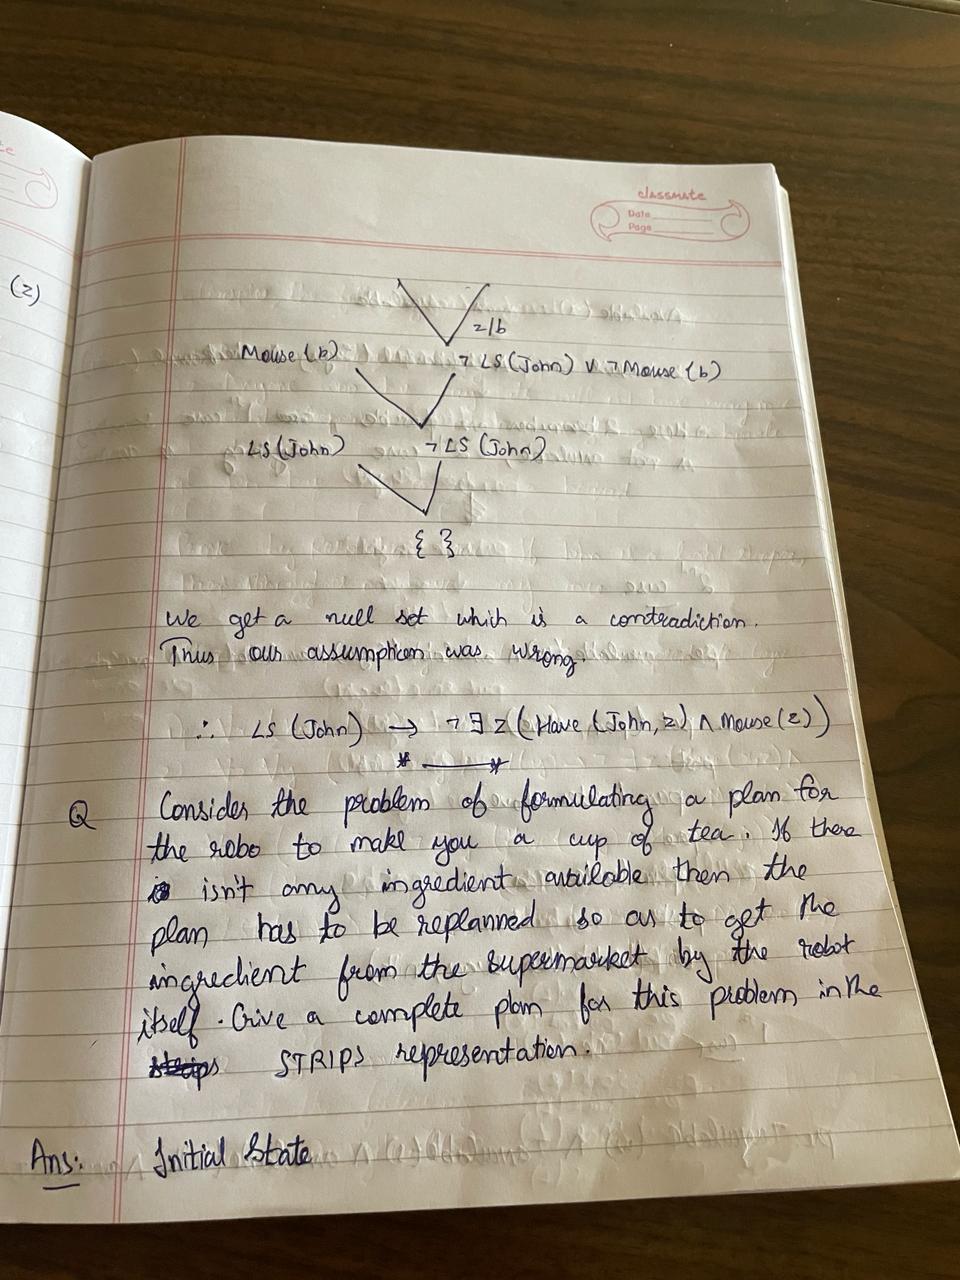 te
classmate
Date
Page
(z)
z/b
Mouse (b) ¬ LS (John) ∨ ¬ Mouse (b)
LS (John) ¬ LS (John)
{ }
We get a null set which is a contradiction.
Thus our assumption was wrong.
∴ LS (John) → ¬ ∃ z (Have (John, z) ∧ Mouse (z))
Q Consider the problem of formulating a plan for
the robo to make you a cup of tea. If there
isn't any ingredient available then the
plan has to be replanned so as to get the
ingredient from the supermarket by the robot
itself. Give a complete plan for this problem in the
STRIPS representation.
Ans: Initial State